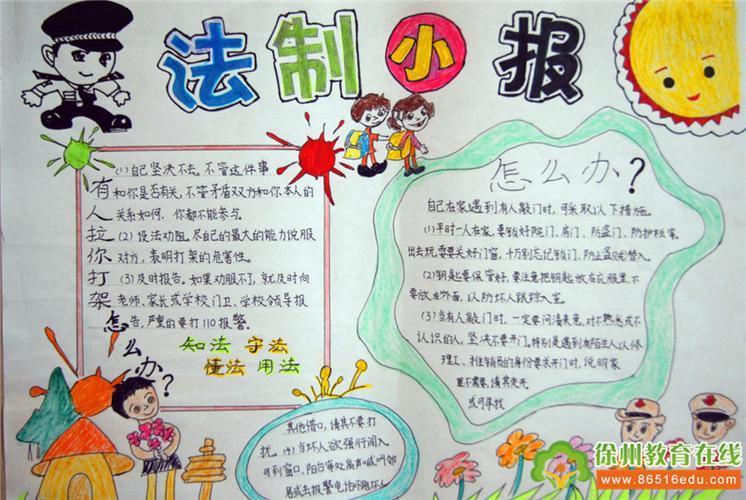 法制小报
有人拉你打架怎么办?
(1)自己坚决不去。不管这件事
和你是否有关,不管矛盾双方和你本人的
关系如何,你都不能参与。
(2)设法劝阻。尽自己的最大的能力说服
对方,表明打架的危害性。
(3)及时报告。如果劝服不了,就及时向
老师、家长或学校门卫、学校领导报
告,严重的要打110报警。
知法 守法
懂法 用法
怎么办?
自己在家遇到有人敲门时,可采取以下措施。
(1)平时一人在家,要锁好院门、房门、防盗门、防护栏等。
出去玩耍要关好门窗,千万别忘记锁门,防止盗贼潜入。
(2)钥匙要保管好,要注意把钥匙放在衣服里,不
要放在外面,以防坏人跟踪入室。
(3)当有人敲门时,一定要问清来意,对不熟悉或不
认识的人,坚决不要开门。特别是遇到有陌生人以修
理工、推销员的身份要求开门时,说明家
里不需要,请其走开
或可寻找
其他借口,请其不要打
扰。(4)当坏人欲强行闯入
可到窗口、阳台等处高声喊叫邻
居或去报警电话
徐州教育在线
www.86516edu.com